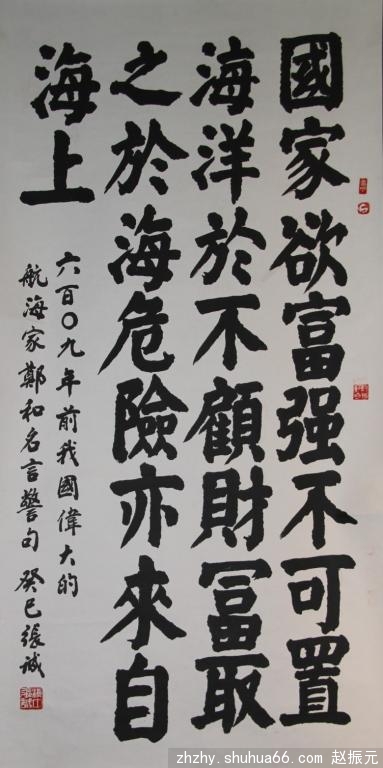 國家欲富强不可置
海洋於不顧財冨取
之於海危險亦來自
海上
六百〇九年前我國偉大的
航海家鄭和名言警句 癸巳張誠
zhzhy.shuhua66.com 赵振元